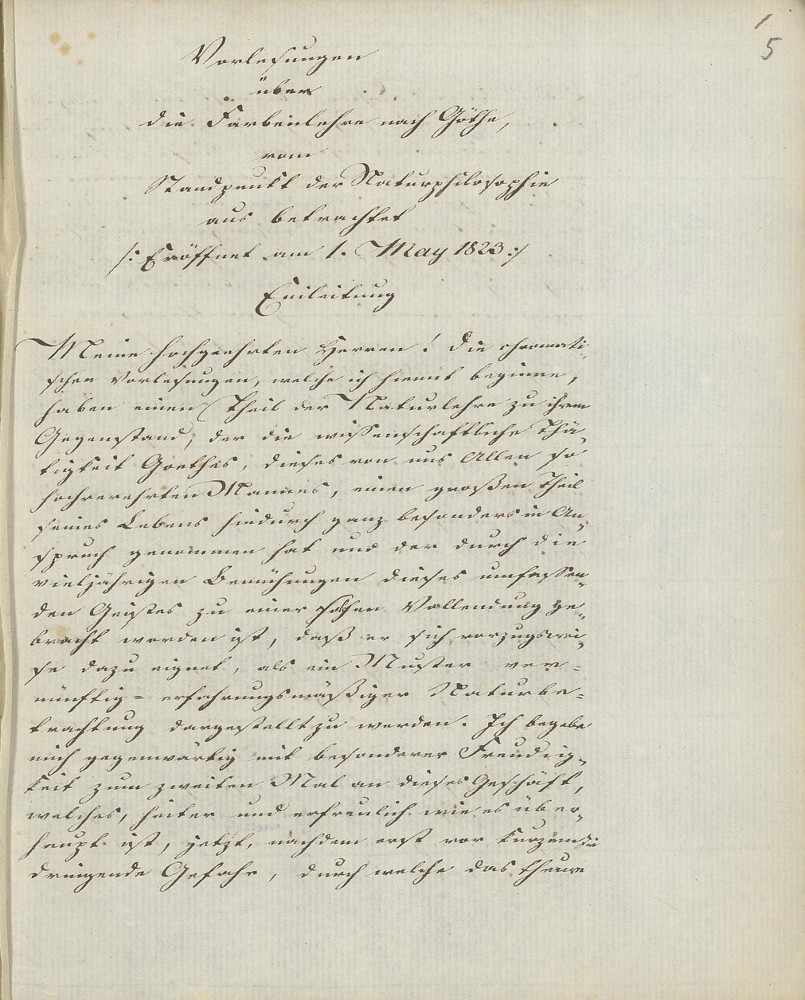 1
5
Vorlesungen
über
die Farbenlehre nach Göthe,
vom
Standpunkt der Naturphilosophie
aus betrachtet
/: Eröffnet am 1. May 1823 :/
Einleitung
Meine hochgeehrten Herren! Die chromati„
schen Vorlesungen, welche ich hiemit beginne,
haben einen Theil der Naturlehre zu ihrem
Gegenstand, der die wissenschaftliche Thä„
tigkeit Goethes, dieses von uns Allen so
hochverehrten Mannes, einen großen Theil
seines Lebens hindurch ganz besonders in An„
spruch genommen hat und der durch die
vieljährigen Bemühungen dieses umfassen„
den Geistes zu einer solchen Vollendung ge„
bracht worden ist, daß er sich vorzugswei„
se dazu eignet, als ein Muster ver=
nünftig=erfahrungsmäßiger Naturbe=
trachtung dargestellt zu werden. Ich begebe
mich gegenwärtig mit besonderer Freudig„
keit zum zweiten Mal an dieses Geschäft,
welches, heiter und erfreulich wie es über„
haupt ist, jetzt, nachdem erst vor kurzem die
dringende Gefahr, durch welche das theure